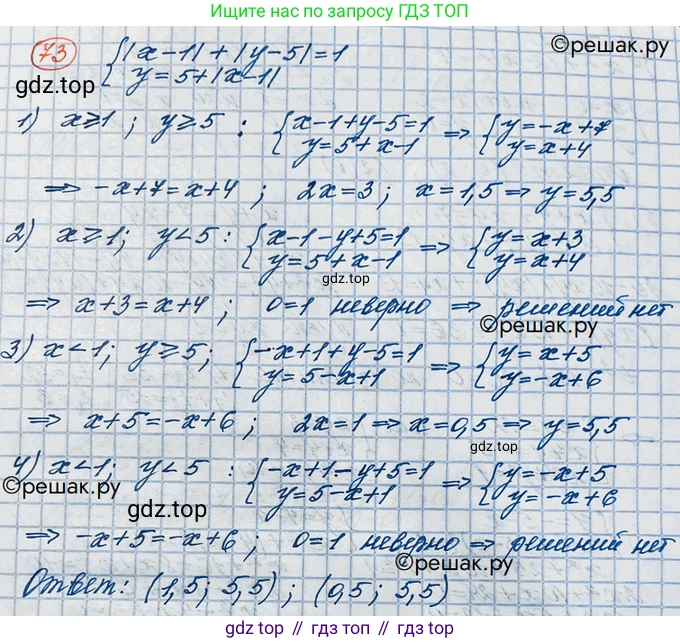 Ищите нас по запросу ГДЗ ТОП
73 {|x-1|+|y-5|=1
y=5+|x-1|
©решак.ру
gdz.top
1) x≥1; y≥5: {x-1+y-5=1 ⇒ {y=-x+7
y=5+x-1 y=x+4
⇒ -x+7=x+4; 2x=3; x=1,5 ⇒ y=5,5
2) x≥1; y<5: {x-1-y+5=1 ⇒ {y=x+3
y=5+x-1 y=x+4
gdz.top
⇒ x+3=x+4; 0=1 неверно ⇒ решений нет
©решак.ру
3) x<1; y≥5; {-x+1+y-5=1 ⇒ {y=x+5
y=5-x+1 y=-x+6
⇒ x+5=-x+6; 2x=1 ⇒ x=0,5 ⇒ y=5,5
gdz.top
4) x<1; y<5: {-x+1-y+5=1 ⇒ {y=-x+5
y=5-x+1 y=-x+6
©решак.ру
gdz.top
⇒ -x+5=-x+6; 0=1 неверно ⇒ решений нет
©решак.ру
Ответ: (1,5; 5,5); (0,5; 5,5)
gdz.top // гдз.топ // гдз топ